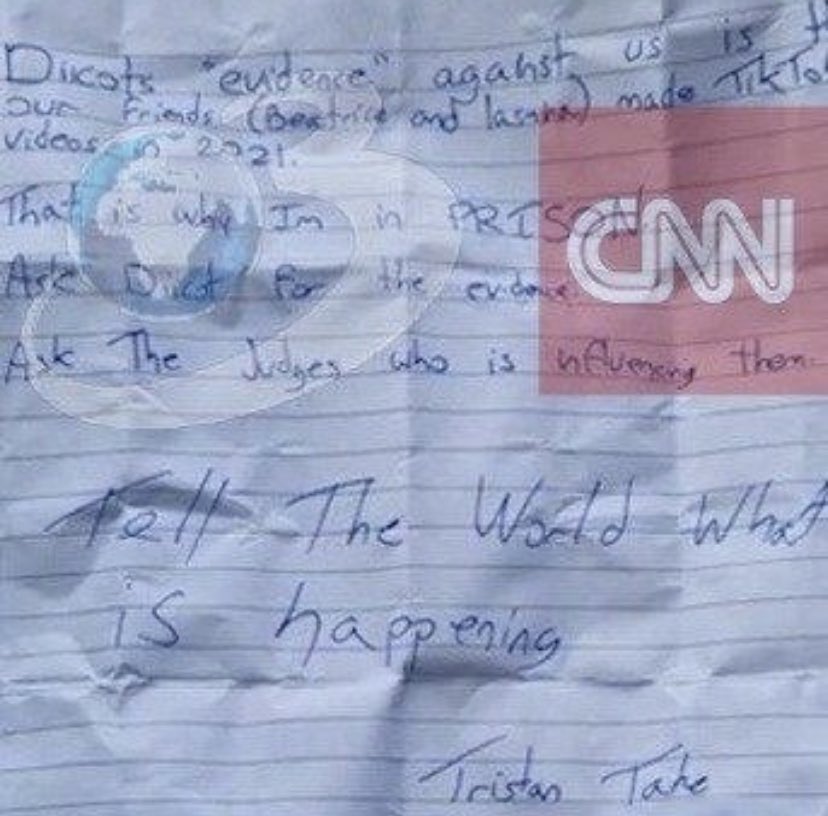 Diicots "evidence" against us is th
our friends (Beatrice and lasmina) made TikTok
videos in 2021.
That is why Im in PRISON.
CNN
Ask Diicot for the evidence.
Ask The Judges who is influencing them.
Tell The World What
is happening
Tristan Tate